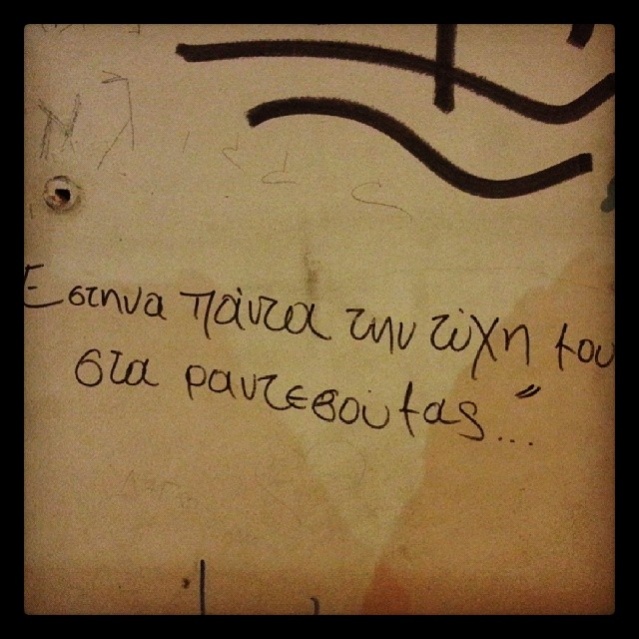 Εστηνα πάντα την τύχη μου
στα ραντεβού μας..."